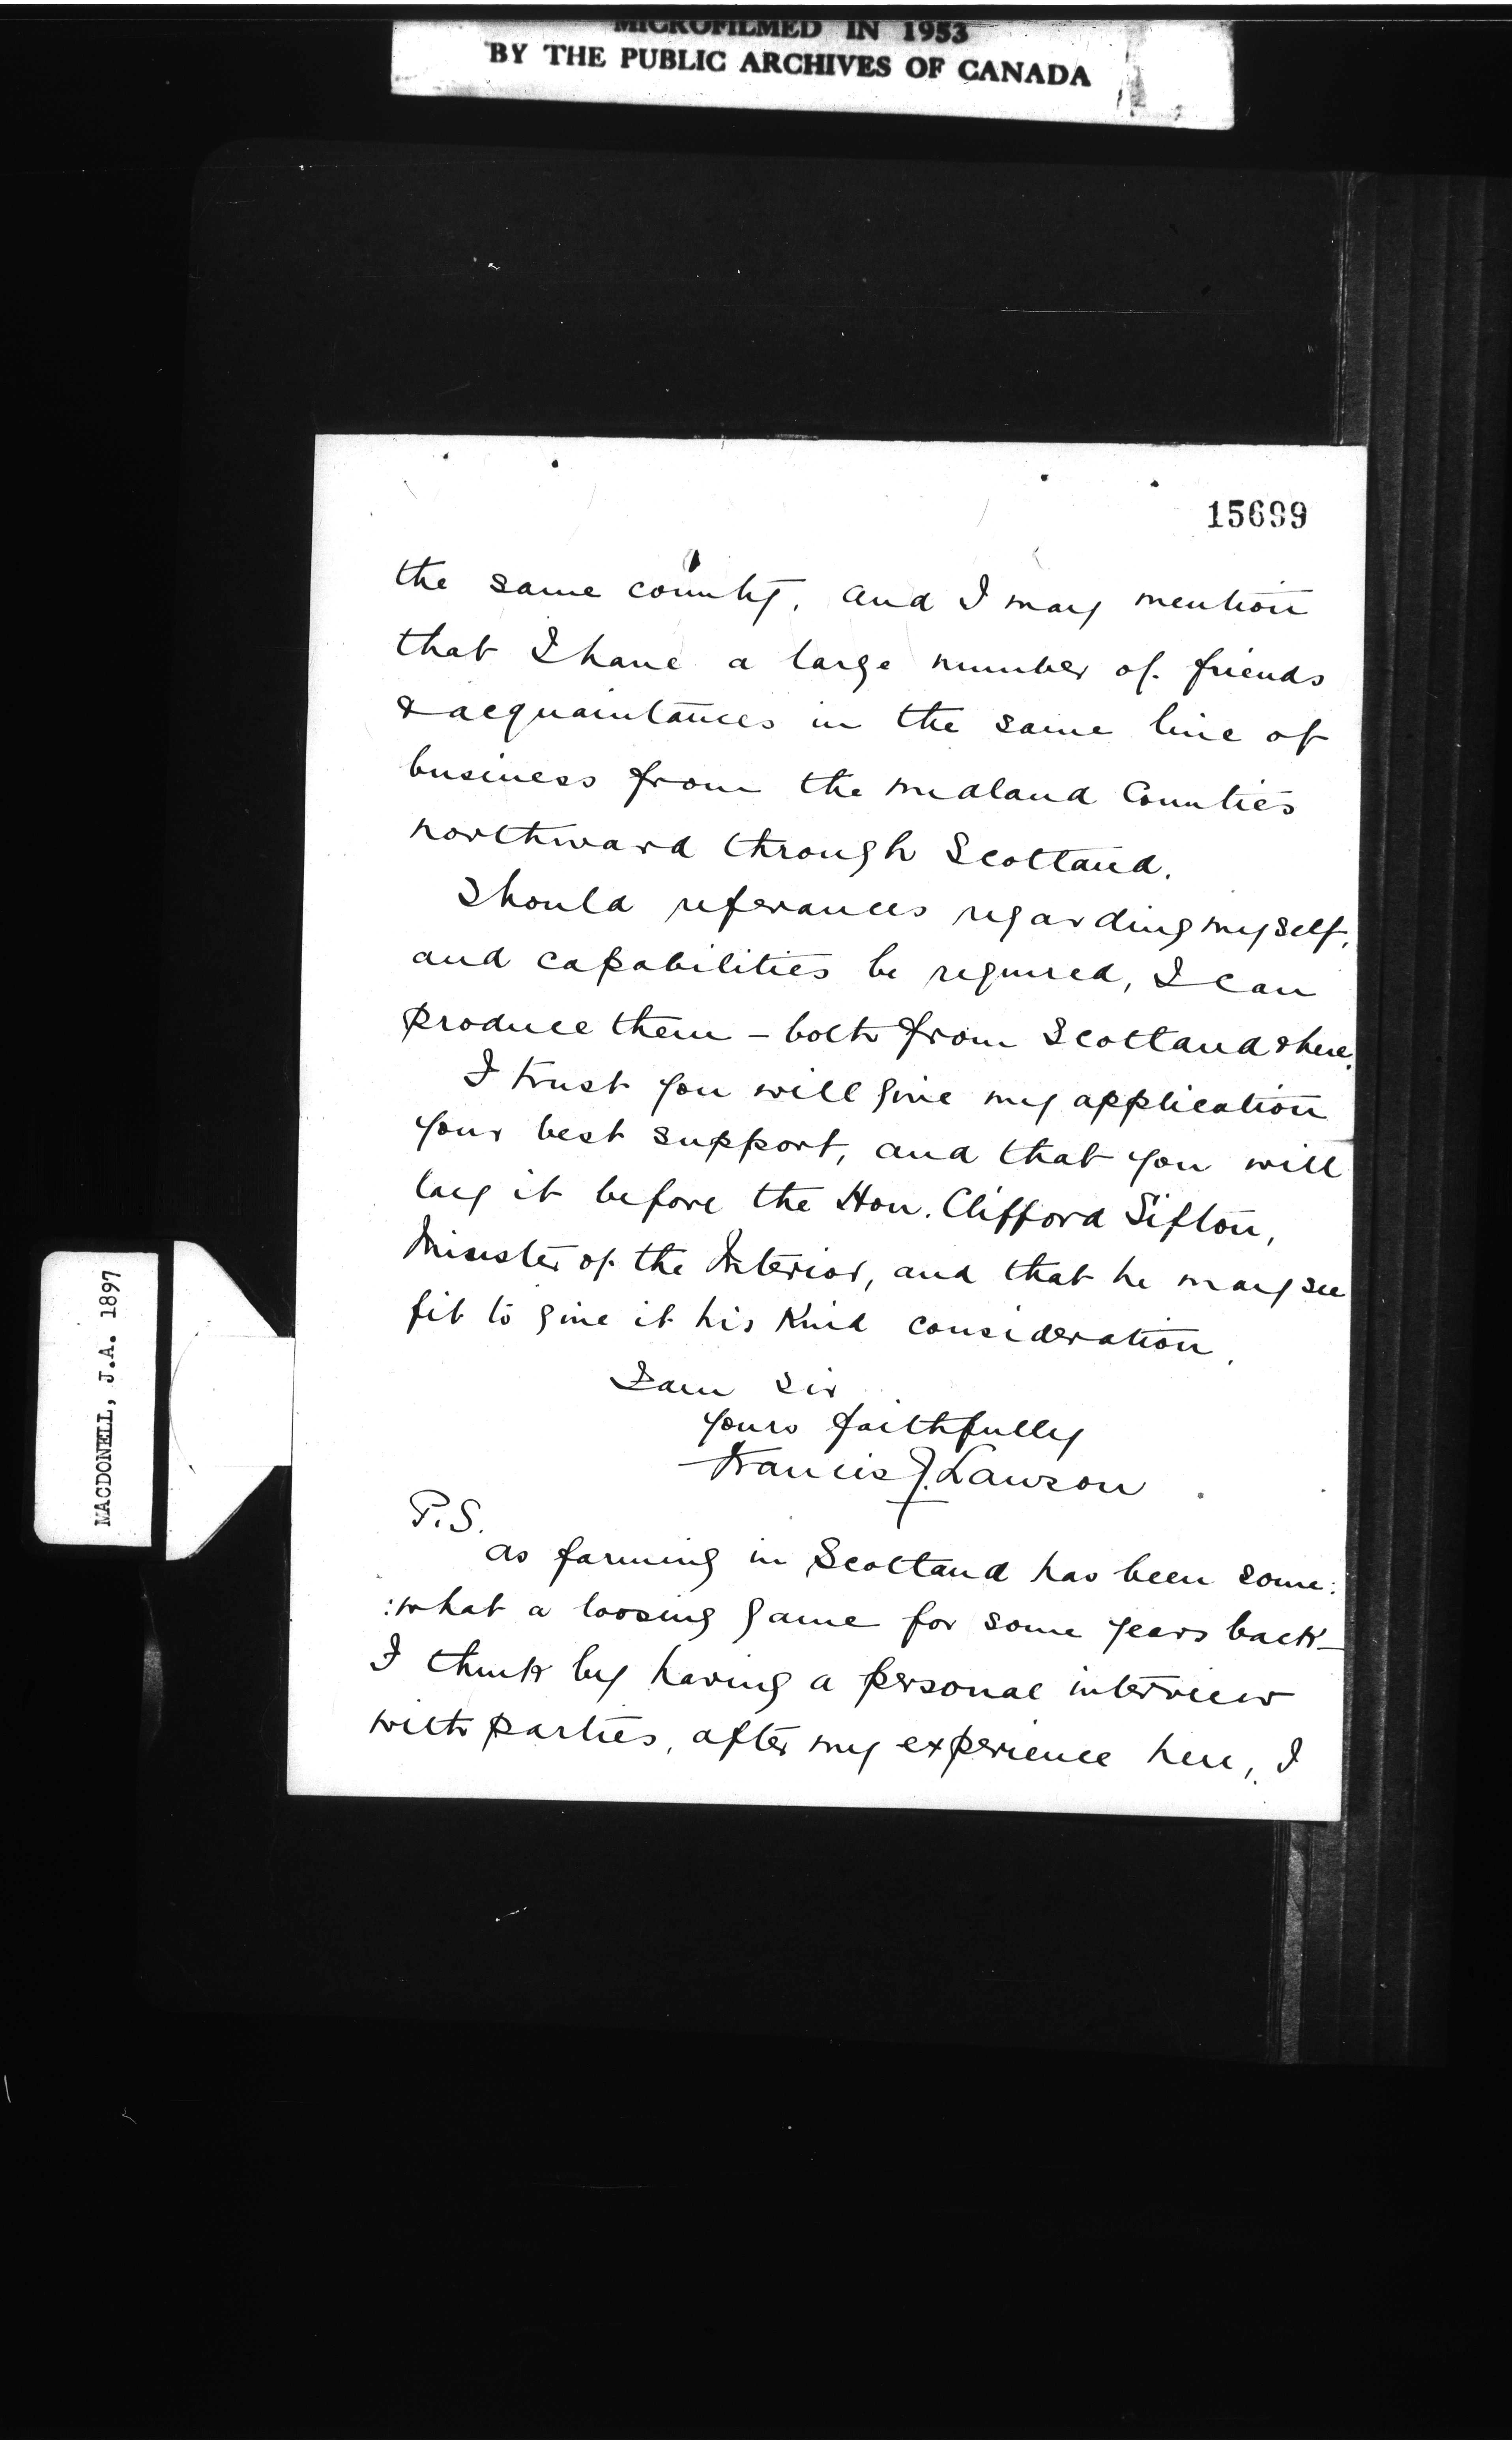 MICROFILMED IN 1953
BY THE PUBLIC ARCHIVES OF CANADA
15699
the same county, and I may mention
that I have a large number of friends
& acquaintances in the same line of
business from the midland Counties
northward through Scotland.
Should referances regarding myself,
and capabilities be required, I can
produce them – both from Scotland & here.
I trust you will give my application
your best support, and that you will
lay it before the Hon. Clifford Sifton,
Minister of the Interior, and that he may see
fit to give it his Kind consideration.
I am Sir
yours faithfully
Francis J. Lawson
P.S.
as farming in Scotland has been some:
:what a loosing game for some years back –
I think by having a personal interview
with parties, after my experience here, I
MACDONELL, J.A. 1897